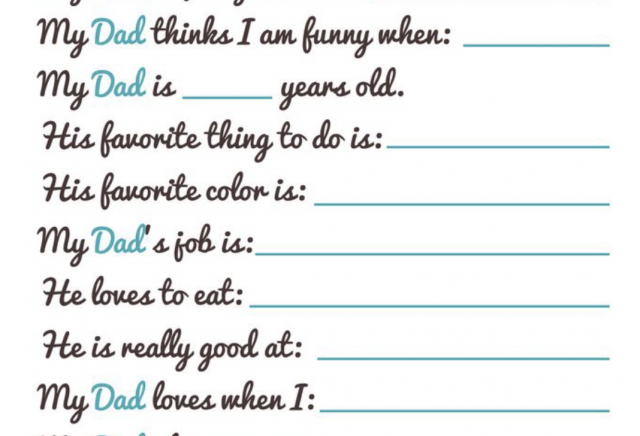 My Dad thinks I am funny when: ________
My Dad is ______ years old.
His favorite thing to do is: ______________
His favorite color is: __________________
My Dad's job is: ______________________
He loves to eat: ______________________
He is really good at: __________________
My Dad loves when I: __________________